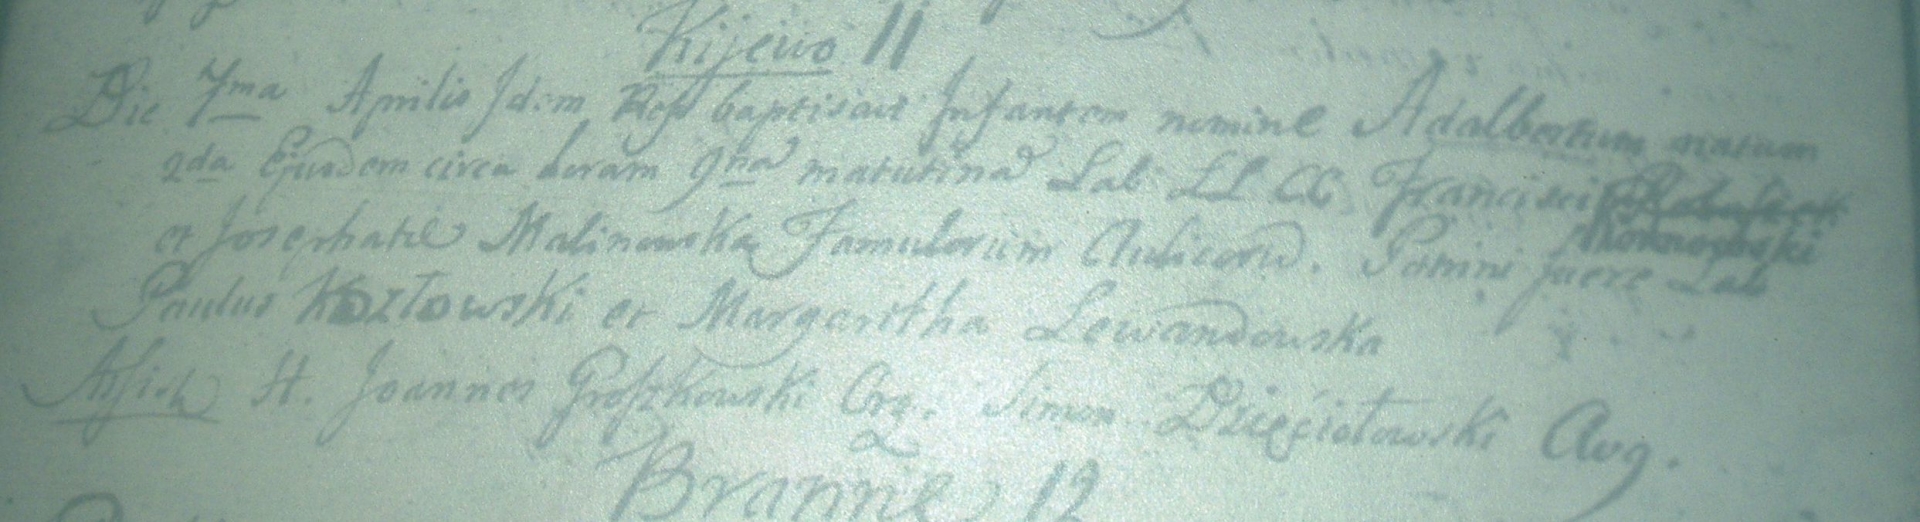 Kijewo 11
Die 7ma Aprilis Idem Rdus baptisavi Infantem nomine Adalbertum natum
2da Ejusdem circa horam 9na matutina Lab: LL CC Francisci
et Josephatae Malinowska Famulorum Aulicorū. Patrini fuere Lab
Paulus Kozłowski et Margaritha Lewandowska
Assist H. Joannes Groszkowski Org. Simon Dzięciołowski Avg.
Branne 12